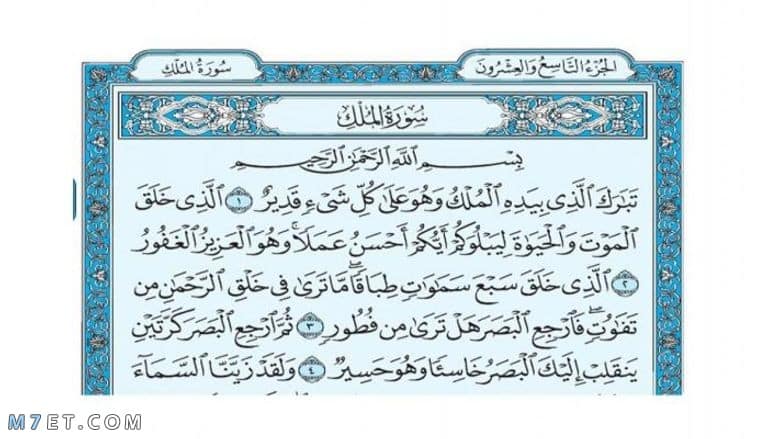 الجُزْءُ التَّاسِعُ وَالعِشْرُونَ
سُورَةُ المُلْكِ
سُورَةُ المُلْكِ
بِسْمِ ٱللَّهِ ٱلرَّحْمَٰنِ ٱلرَّحِيمِ
تَبَٰرَكَ ٱلَّذِى بِيَدِهِ ٱلْمُلْكُ وَهُوَ عَلَىٰ كُلِّ شَىْءٍ قَدِيرٌ ١ ٱلَّذِى خَلَقَ
ٱلْمَوْتَ وَٱلْحَيَوٰةَ لِيَبْلُوَكُمْ أَيُّكُمْ أَحْسَنُ عَمَلًا ۚ وَهُوَ ٱلْعَزِيزُ ٱلْغَفُورُ
٢ ٱلَّذِى خَلَقَ سَبْعَ سَمَٰوَٰتٍ طِبَاقًا ۖ مَّا تَرَىٰ فِى خَلْقِ ٱلرَّحْمَٰنِ مِن
تَفَٰوُتٍ ۖ فَٱرْجِعِ ٱلْبَصَرَ هَلْ تَرَىٰ مِن فُطُورٍ ٣ ثُمَّ ٱرْجِعِ ٱلْبَصَرَ كَرَّتَيْنِ
يَنقَلِبْ إِلَيْكَ ٱلْبَصَرُ خَاسِئًا وَهُوَ حَسِيرٌ ٤ وَلَقَدْ زَيَّنَّا ٱلسَّمَآءَ
M7ET.COM